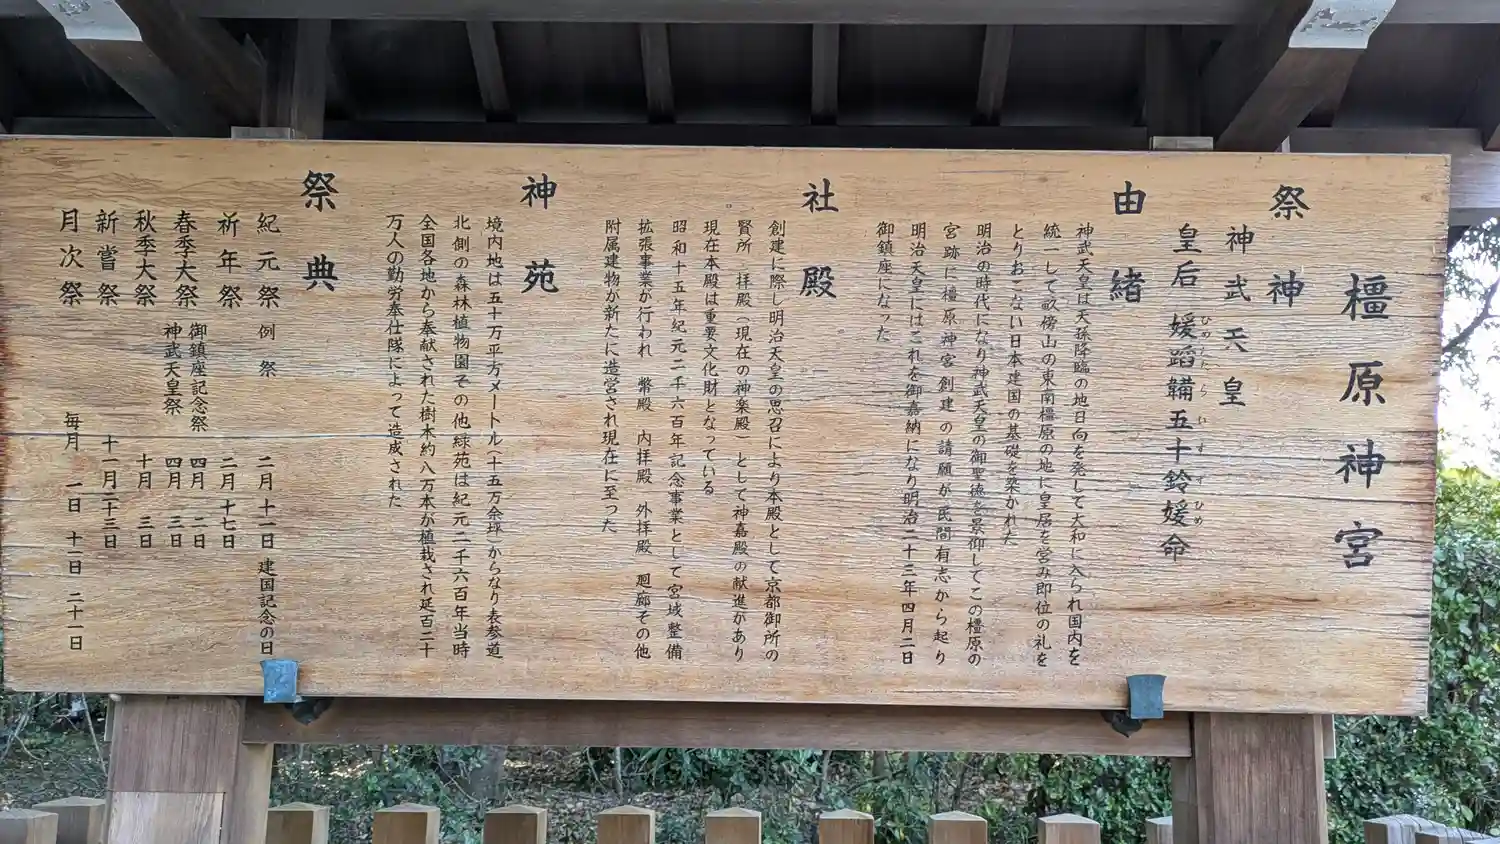 橿原神宮
祭神
神武天皇
皇后 媛蹈鞴五十鈴媛命
ひめたたら いすずひめ
由緒
神武天皇は天孫降臨の地日向を発して大和に入られ国内を
統一して畝傍山の東南橿原の地に皇居を営み即位の礼を
とりおこない日本建国の基礎を築かれた
明治の時代になり神武天皇の御聖徳を景仰してこの橿原の
宮跡に橿原神宮創建の請願が民間有志から起り
明治天皇にはこれを御嘉納になり明治二十三年四月二日
御鎮座になった
社殿
創建に際し明治天皇の思召により本殿として京都御所の
賢所 拝殿(現在の神楽殿)として神嘉殿の献進があり
現在本殿は重要文化財となっている
昭和十五年紀元二千六百年記念事業として宮域整備
拡張事業が行われ 幣殿 内拝殿 外拝殿 廻廊その他
附属建物が新たに造営され現在に至った
神苑
境内地は五十万平方メートル(十五万余坪)からなり表参道
北側の森林植物園その他緑苑は紀元二千六百年当時
全国各地から奉献された樹木約八万本が植栽され延百二十
万人の勤労奉仕隊によって造成された
祭典
紀元祭 例祭 二月十一日 建国記念の日
祈年祭 二月十七日
春季大祭 御鎮座記念祭 四月二日
神武天皇祭 四月三日
秋季大祭 十月三日
新嘗祭 十一月二十三日
月次祭 毎月 一日 十一日 二十一日